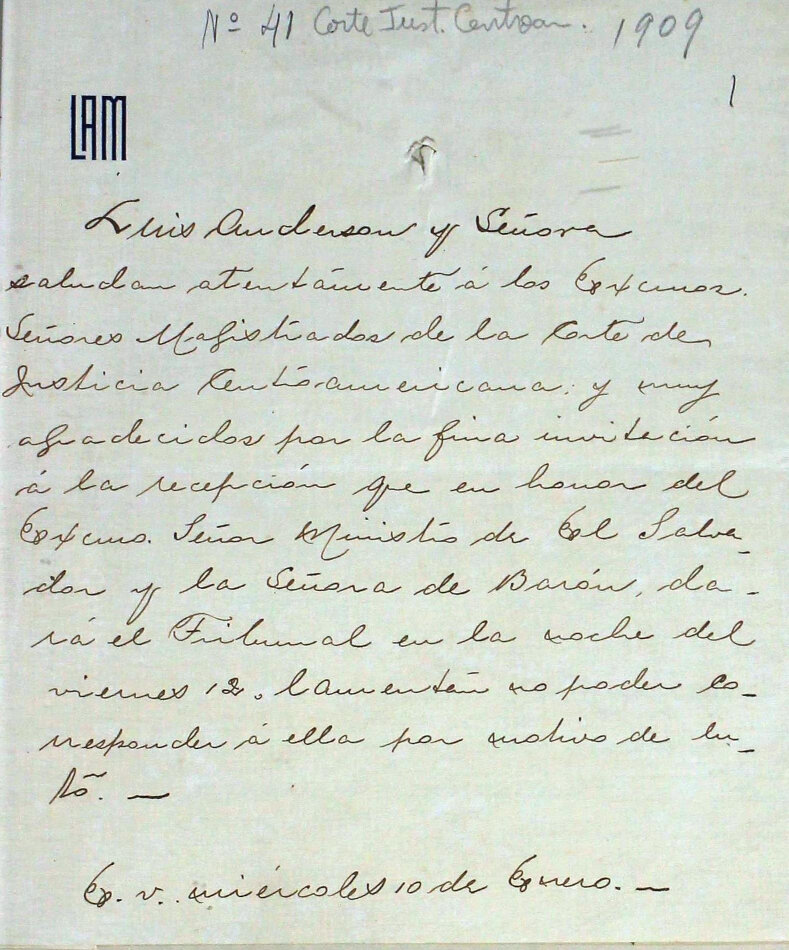 Nº 41 Corte Just. Centroam. 1909
1
LAM
Luis Anderson y Señora
saludan atentamente á los Excmos.
Señores Magistrados de la Corte de
Justicia Centroamericana; y muy
agradecidos por la fina invitación
á la recepción que en honor del
Excmo. Señor Ministro de El Salva-
dor y la Señora de Barón, da-
rá el Tribunal en la noche del
viernes 12, lamentan no poder co-
rresponder á ella por motivo de lu-
to. —
C. v. miércoles 10 de Enero. —